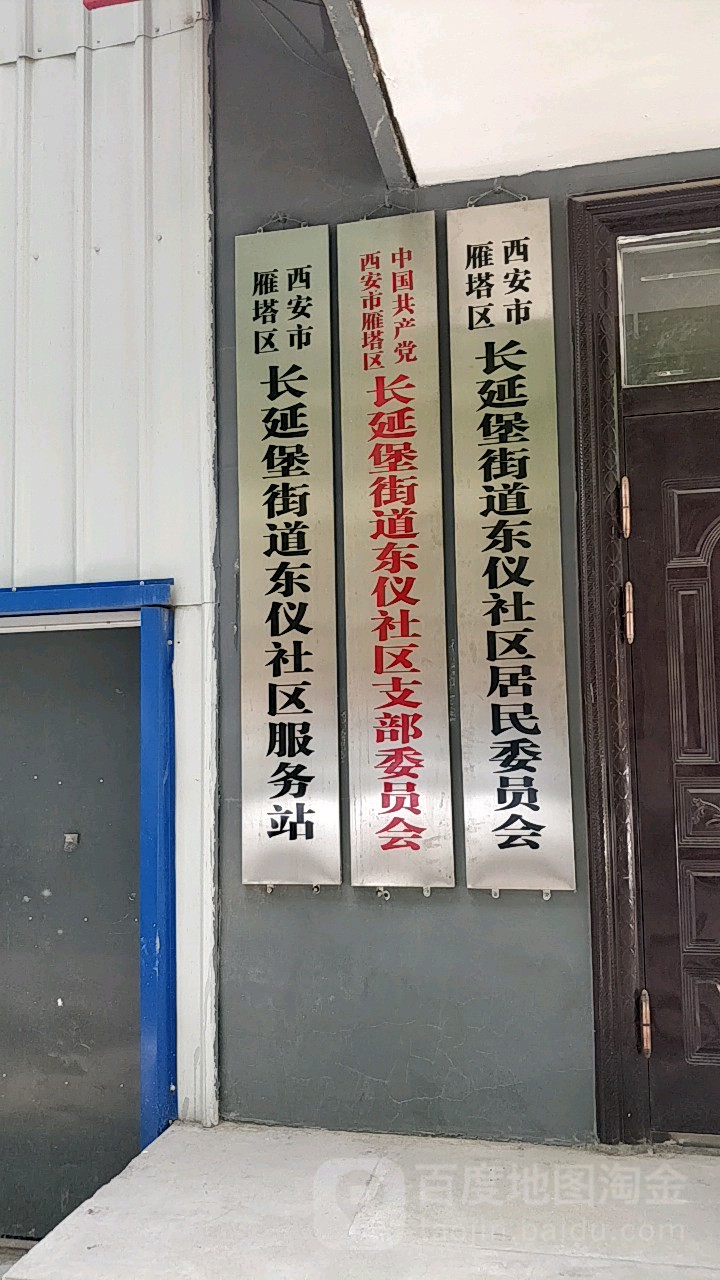 西安市
雁塔区
长延堡街道东仪社区服务站
中国共产党
西安市雁塔区
长延堡街道东仪社区支部委员会
西安市
雁塔区
长延堡街道东仪社区居民委员会
百度地图淘金
taojin.baidu.com